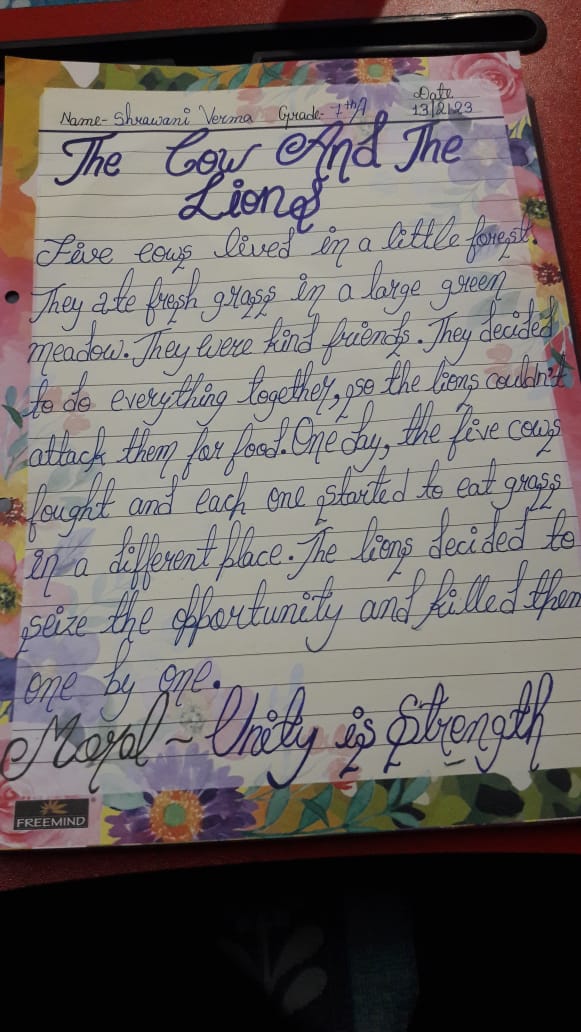 Name- Shrawani Verma Grade- 7thA Date
13/2/23
The Cow And The
Lions
Five cows lived in a little forest.
They ate fresh grass in a large green
meadow. They were kind friends. They decided
to do everything together, so the lions couldn't
attack them for food. One day, the five cows
fought and each one started to eat grass
in a different place. The lions decided to
seize the opportunity and killed them
one by one.
Moral ~ Unity is Strength
FREEMIND